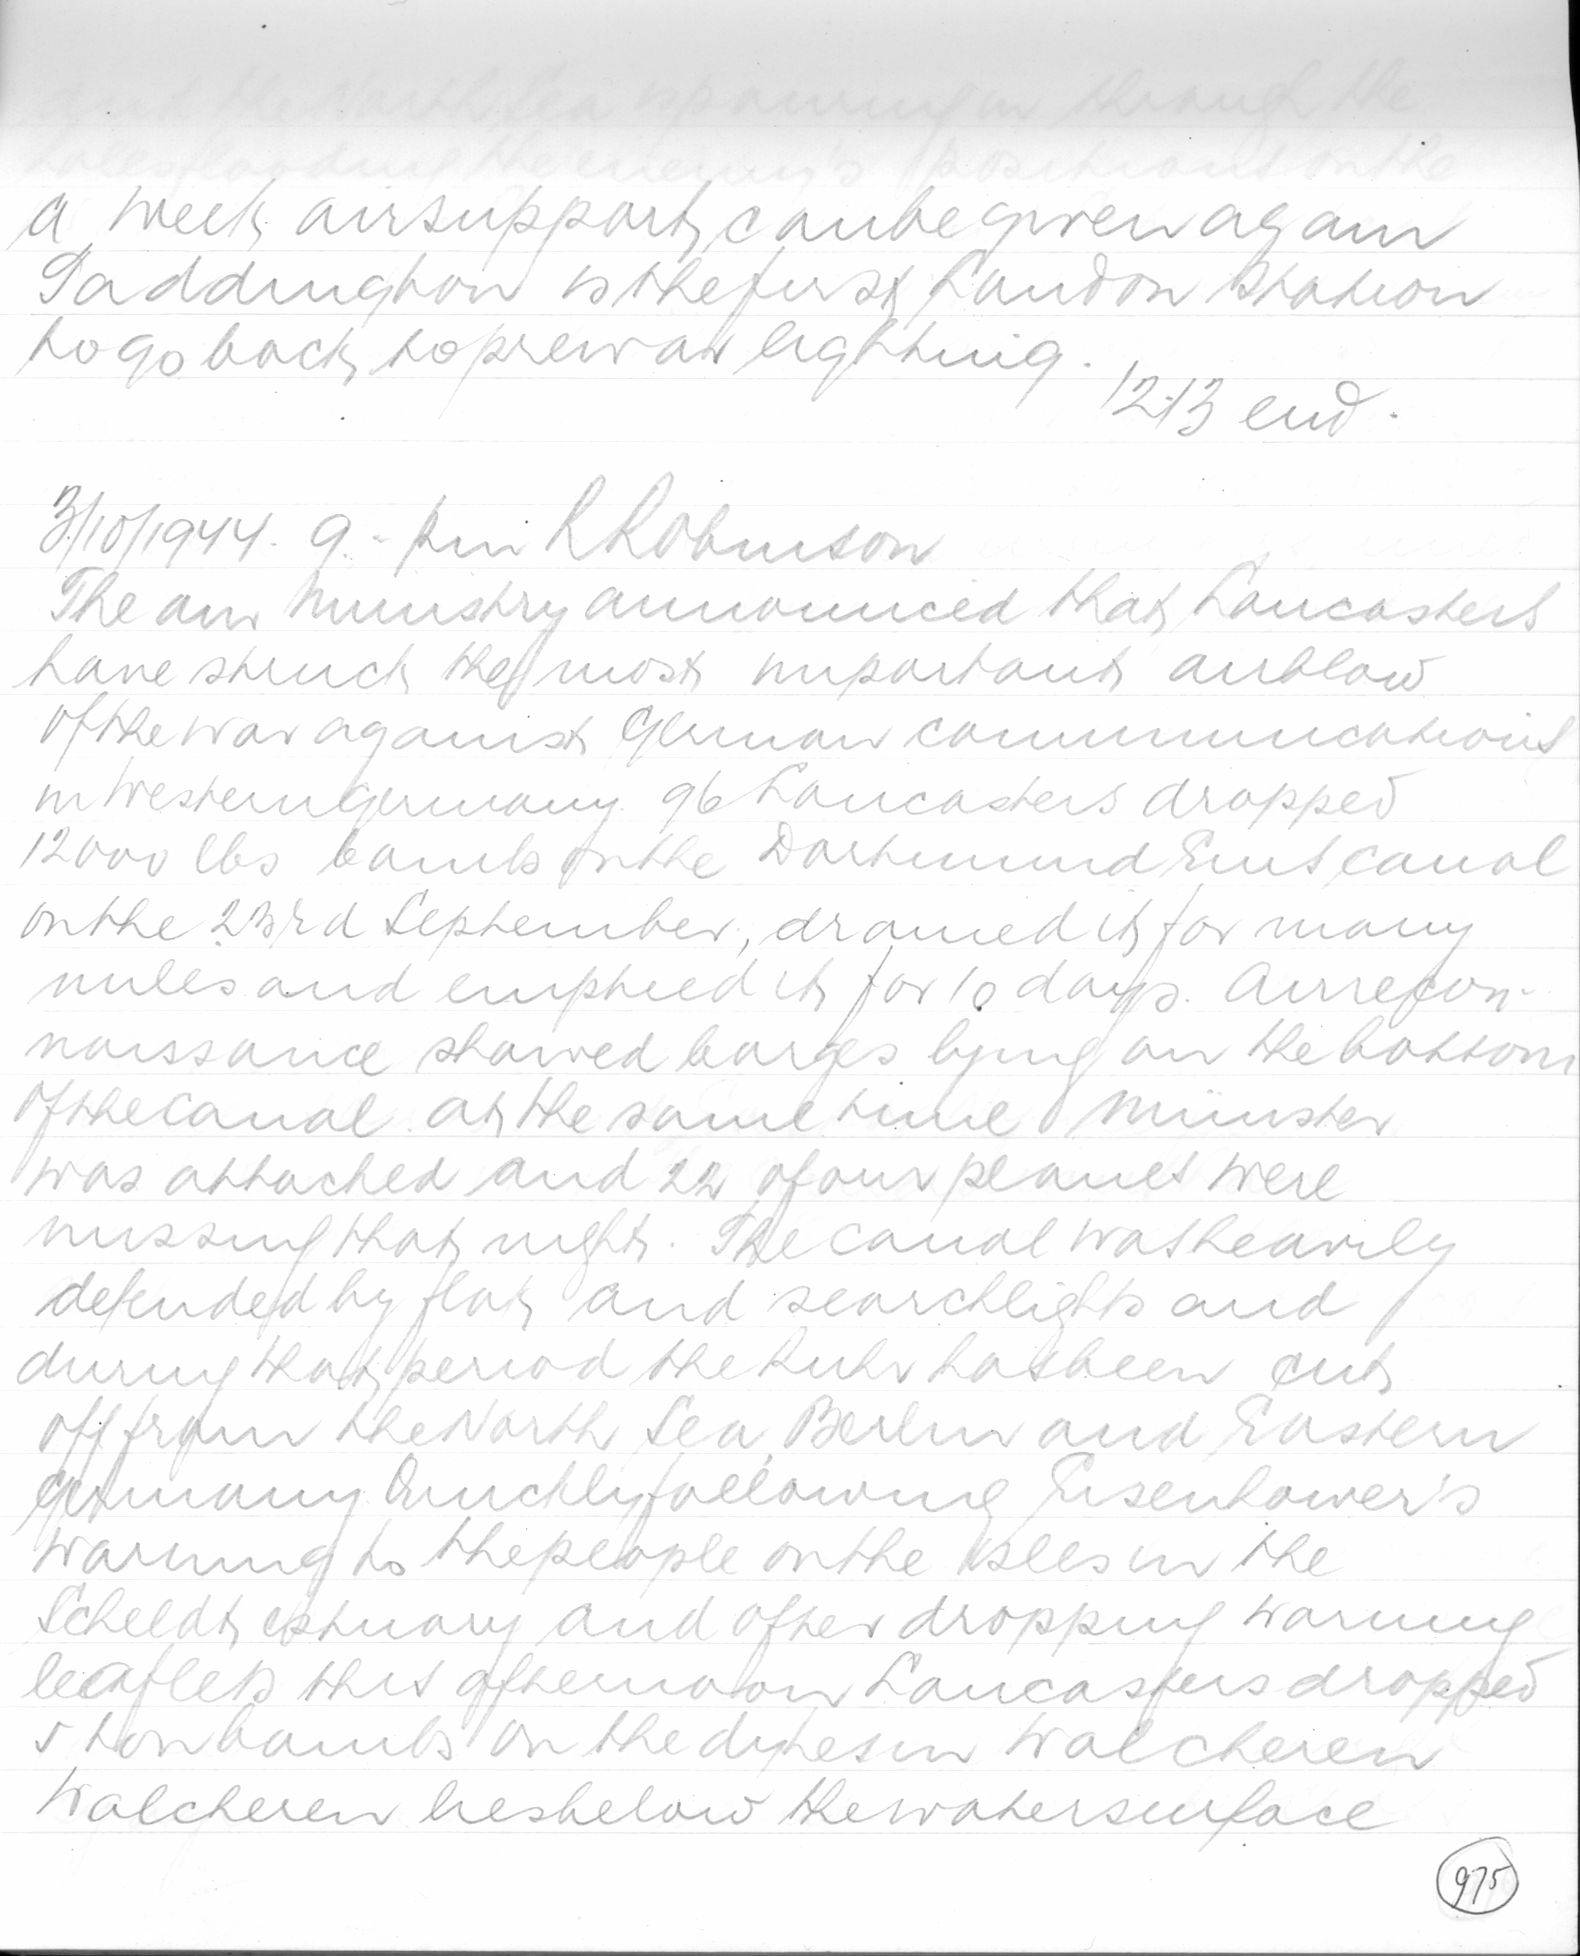 and the North Sea is pouring in through the
holes flooding the enemy's positions on the
a week airsupport can be given again
Paddington is the first London Station
to go back to prewar lighting.
12.13 end.
3/10/1944. 9.- pm R Robinson
The air Ministry announced that Lancasters
have struck the most important airblow
of the war against German communications
in Western Germany. 96 Lancasters dropped
12000 lbs bombs on the Dortmund Ems canal
on the 23rd September, drained it for many
miles and emptied it for 10 days. Air recon-
naissance showed barges lying on the bottom
of the canal. At the same time Münster
was attacked and 22 of our planes were
missing that night. The canal was heavily
defended by flak and searchlights and
during that period the Ruhr has been cut
off from the North Sea, Berlin and Eastern
Germany. Quickly following Eisenhower's
warning to the people on the isles in the
Scheldt estuary and after dropping warning
leaflets this afternoon Lancasters dropped
5 ton bombs on the dykes in Walcheren
Walcheren lies below the watersurface
975